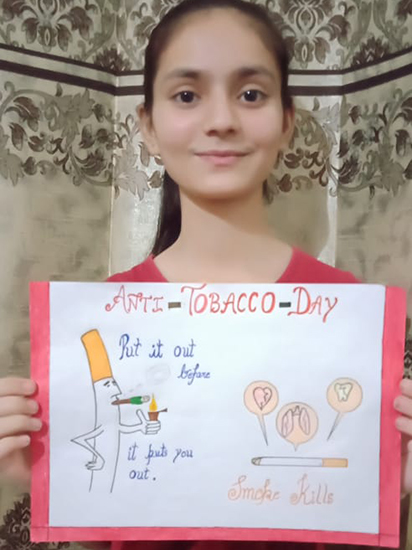 ANTI-TOBACCO-DAY
Put it out
before
it puts you
out.
Smoke Kills